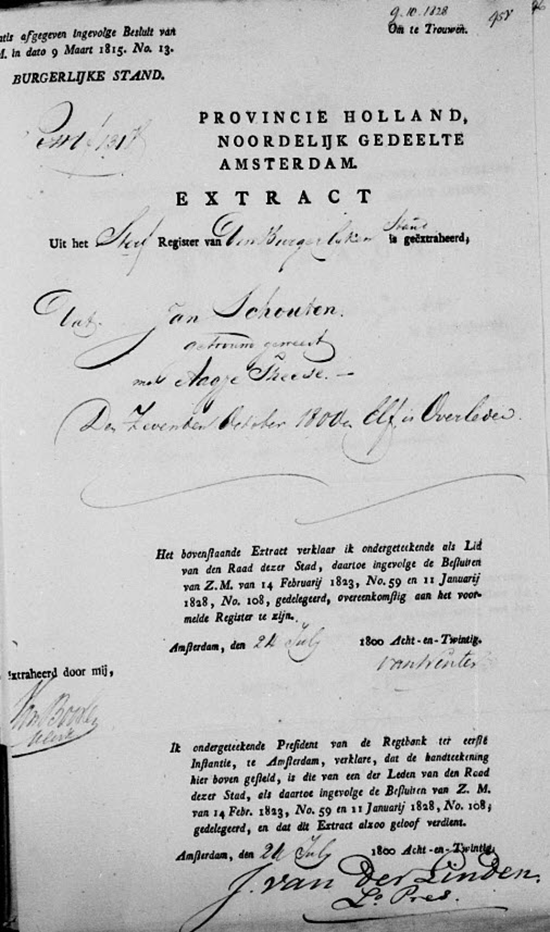 9.10.1828
958
96
atis afgegeven ingevolge Besluit van
M. in dato 9 Maart 1815. No. 13.
Om te Trouwen.
BURGERLIJKE STAND.
PROVINCIE HOLLAND,
NOORDELIJK GEDEELTE
AMSTERDAM.
EXTRACT
Uit het Sterf Register van Den Burgerlyken Stand is geëxtraheerd,
Dat Jan Schouten.
getrouwd geweest
met Aagje Theese. —
Den Zevenden October 1800 en Elf is Overleden.
Het bovenstaande Extract verklaar ik ondergeteekende als Lid
van den Raad dezer Stad, daartoe ingevolge de Besluiten
van Z. M. van 14 Februarij 1823, No. 59 en 11 Januarij
1828, No. 108, gedelegeerd, overeenkomstig aan het voor-
melde Register te zijn.
Amsterdam, den 24 July 1800 Acht-en-Twintig.
van Winter
extraheerd door mij,
Ik ondergeteekende President van de Regtbank ter eerste
Instantie, te Amsterdam, verklare, dat de handteekening
hier boven gesteld, is die van een der Leden van den Raad
dezer Stad, als daartoe ingevolge de Besluiten van Z. M.
van 14 Febr. 1823, No. 59 en 11 Januarij 1828, No. 108;
gedelegeerd, en dat dit Extract alzoo geloof verdient.
Amsterdam, den 24 July 1800 Acht-en-Twintig.
J. van Der Linden.
Lo Pres.